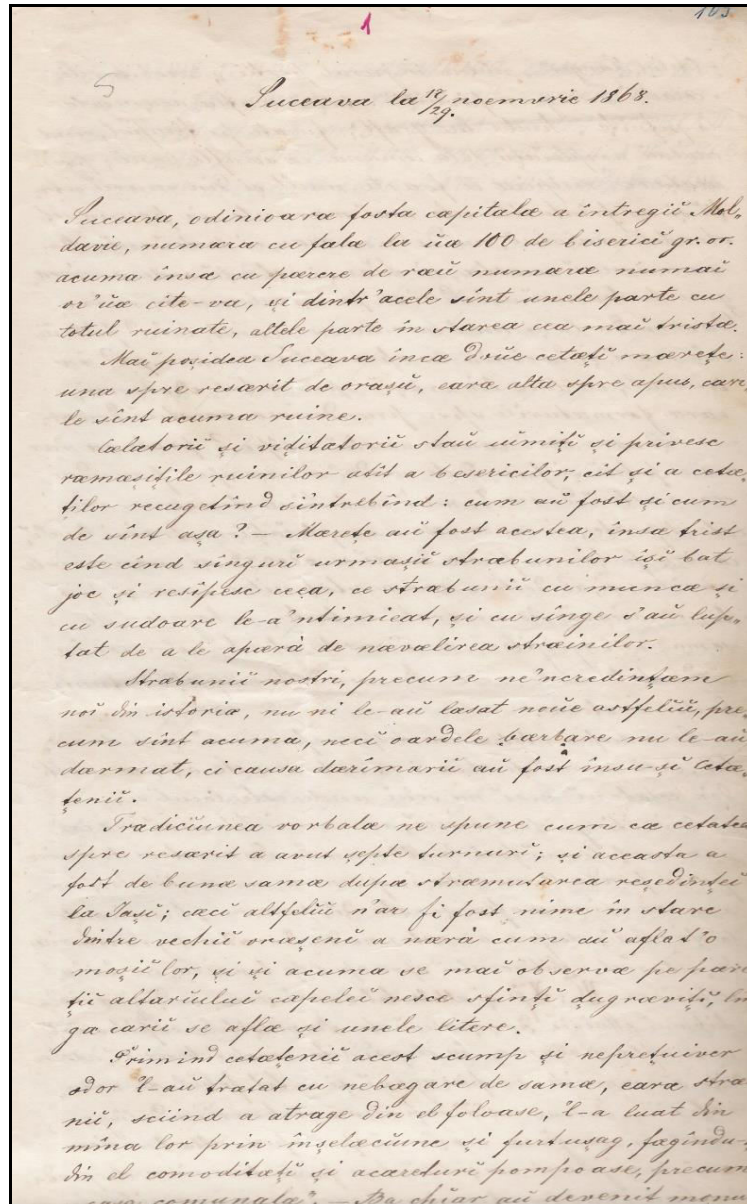 1
163
5
Suceava la 17/29. noemvrie 1868.
Suceava, odinioaræ fosta capitalæ a întregiĭ Mol„
davie, numæra cu falæ la ũa 100 de bisericĭ gr. or.
acuma însæ cu pærere de ræŭ numæræ numaĭ
vr'ũæ cîte-va, și dintr'acele sînt unele parte cu
totul ruinate, altele parte în starea cea maĭ tristæ.
Maĭ posidea Suceava încæ douĕ cetæțĭ mærețe:
una spre resærit de orașŭ, earæ alta spre apus, care,
le sînt acuma ruine.
Cælatoriĭ și viditatoriĭ staŭ uimițĭ și privesc
ræmæsițile ruinilor atît a besericilor, cît și a cetæ„
ților recugetînd s'intrebînd: cum aŭ fost și cum
de sînt așa? — Mærețe aŭ fost acestea, însæ trist
este cînd singurĭ urmașiĭ stræbunilor îșĭ bat
joc și resipesc ceea, ce stræbuniĭ cu muncæ și
cu sudoare le-a'ntimicat, și cu sînge s'aŭ lup„
tat de a le apærà de nævælirea stræinilor.
Stræbuniĭ nostri, precum ne'ncredințæm
noĭ din istoriæ, nu ni le-aŭ læsat nouĕ astfeliŭ, pre„
cum sînt acuma, necĭ oardele bærbare nu le-aŭ
dærmat, ci causa dærîmariĭ aŭ fost însu-șĭ cetæ„
țeniĭ.
Tradicĭunea vorbalæ ne spune cum cæ cetatea
spre resærit a avut șepte turnurĭ; și aceasta a
fost de bunæ samæ dupæ stræmutarea reședințeĭ
la Iașĭ; cæcĭ altfeliŭ n'ar fi fost nime în stare
dintre vechiĭ orașenĭ a nærà cum aŭ aflat'o
moșiĭ lor, și și acuma se maĭ observæ pe pære
țiĭ altariuluĭ capeleĭ nesce sfințĭ zugrævițĭ, lîn
ga cariĭ se aflæ și unele litere.
Primind cetæțeniĭ acest scump și neprețuiver
odor 'l-aŭ tratat cu nebægare de samæ, earæ stræ
niĭ, sciind a atrage din el foloase, 'l-a luat din
mîna lor prin înșelæcĭune și furtușag, fægîndu-șĭ
din el comoditæțĭ și acareturĭ pompoase, precum
casa comunalæ". — Ba chiar aŭ devenit